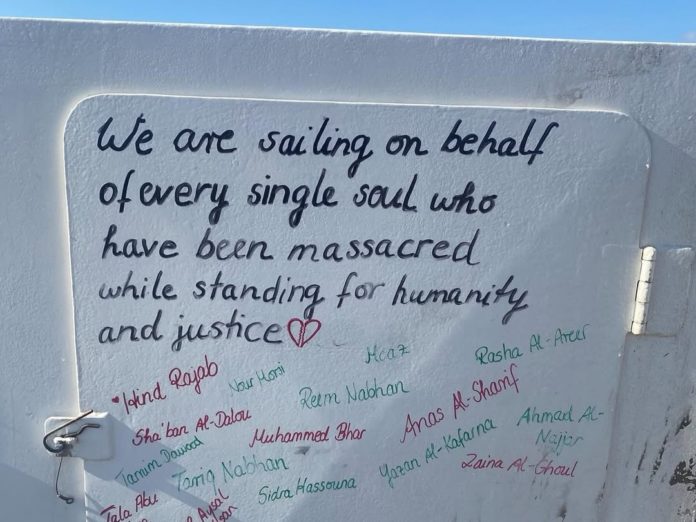 We are sailing on behalf
of every single soul who
have been massacred
while standing for humanity
and justice
Hind Rajab
Nour Honi
Moaz
Rasha Al-Areer
Sha'ban Al-Dalou
Reem Nabhan
Anas Al-Sharif
Muhammed Bhar
Ahmad Al-
Najjar
Tamim Dawood
Tariq Nabhan
Yazan Al-Kafarna
Zaina Al-Ghoul
Sidra Hassouna
Tala Abu
Aysal